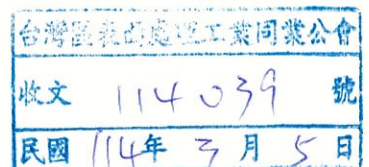 台灣區表面處理工業同業公會
收文 114039 號
民國 114年 3 月 5 日